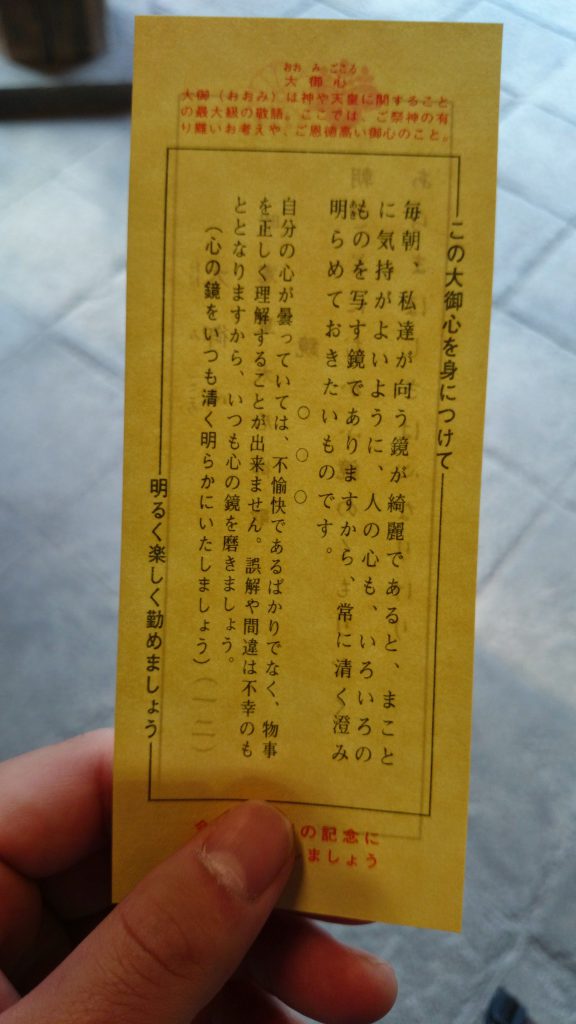 おおみごころ
大御心
大御（おおみ）は神や天皇に関すること
の最大級の敬語。ここでは、ご祭神の有
り難いお考えや、ご恩徳高い御心のこと。
この大御心を身につけて
毎朝、私達が向う鏡が綺麗であると、まこと
に気持がよいように、人の心も、いろいろの
ものを写す鏡でありますから、常に清く澄み
明らめておきたいものです。
○○○
自分の心が曇っていては、不愉快であるばかりでなく、物事
を正しく理解することが出来ません。誤解や間違は不幸のも
ととなりますから、いつも心の鏡を磨きましょう。
（心の鏡をいつも清く明らかにいたしましょう）（一二）
明るく楽しく勤めましょう
の記念に
ましょう